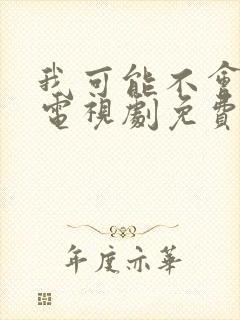 我可能不會
電視劇免費
年度示華